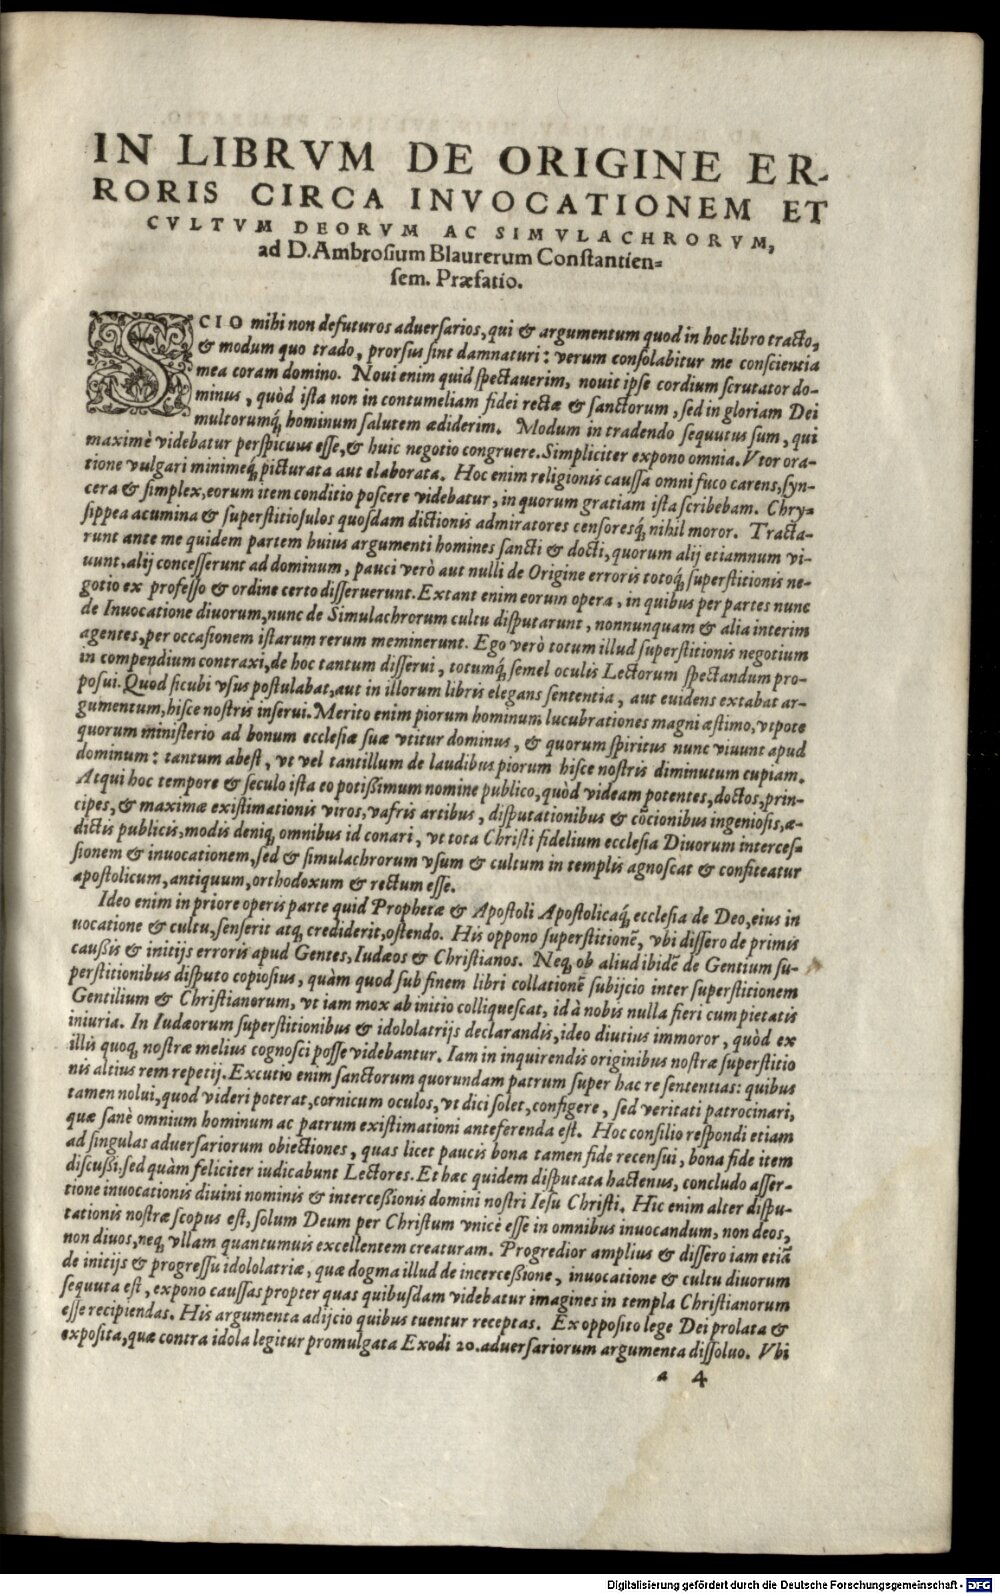 IN LIBRVM DE ORIGINE ER-
RORIS CIRCA INVOCATIONEM ET
CVLTVM DEORVM AC SIMVLACHRORVM,
ad D. Ambrosium Blaurerum Constantien=
sem. Præfatio.
SCIO mihi non defuturos aduersarios, qui & argumentum quod in hoc libro tracto,
& modum quo trado, prorsus sint damnaturi: verum consolabitur me conscientia
mea coram domino. Noui enim quid spectauerim, nouit ipse cordium scrutator do-
minus, quòd ista non in contumeliam fidei rectæ & sanctorum, sed in gloriam Dei
multorumq́; hominum salutem ædiderim. Modum in tradendo sequutus sum, qui
maximè videbatur perspicuus esse, & huic negotio congruere. Simpliciter expono omnia. Vtor ora-
tione vulgari minimeq́; picturata aut elaborata. Hoc enim religionis caussa omni fuco carens, syn-
cera & simplex, eorum item conditio poscere videbatur, in quorum gratiam ista scribebam. Chry=
sippea acumina & superstitiosulos quosdam dictionis admiratores censoresq́; nihil moror. Tracta-
runt ante me quidem partem huius argumenti homines sancti & docti, quorum alij etiamnum vi-
uunt, alij concesserunt ad dominum, pauci verò aut nulli de Origine erroris totoq́; superstitionis ne-
gotio ex professo & ordine certo disseruerunt. Extant enim eorum opera, in quibus per partes nunc
de Inuocatione diuorum, nunc de Simulachrorum cultu disputarunt, nonnunquam & alia interim
agentes, per occasionem istarum rerum meminerunt. Ego verò totum illud superstitionis negotium
in compendium contraxi, de hoc tantum disserui, totumq́; semel oculis Lectorum spectandum pro-
posui. Quod sicubi vsus postulabat, aut in illorum libris elegans sententia, aut euidens extabat ar-
gumentum, hisce nostris inserui. Merito enim piorum hominum lucubrationes magni æstimo, vtpote
quorum ministerio ad bonum ecclesiæ suæ vtitur dominus, & quorum spiritus nunc viuunt apud
dominum: tantum abest, vt vel tantillum de laudibus piorum hisce nostris diminutum cupiam.
Atqui hoc tempore & seculo ista eo potißimum nomine publico, quòd videam potentes, doctos, prin-
cipes, & maximæ existimationis viros, vafris artibus, disputationibus & cōcionibus ingeniosis, æ-
dictis publicis, modis deniq; omnibus id conari, vt tota Christi fidelium ecclesia Diuorum interces-
sionem & inuocationem, sed & simulachrorum vsum & cultum in templis agnoscat & confiteatur
apostolicum, antiquum, orthodoxum & rectum esse.
Ideo enim in priore operis parte quid Prophetæ & Apostoli Apostolicaq́; ecclesia de Deo, eius in
uocatione & cultu, senserit atq; crediderit, ostendo. His oppono superstitionē, vbi dissero de primis
caußis & initijs erroris apud Gentes, Iudæos & Christianos. Neq; ob aliud ibidē de Gentium su-
perstitionibus disputo copiosius, quàm quod sub finem libri collationē subijcio inter superstitionem
Gentilium & Christianorum, vt iam mox ab initio colliquescat, id à nobis nulla fieri cum pietatis
iniuria. In Iudæorum superstitionibus & idololatrijs declarandis, ideo diutius immoror, quòd ex
illis quoq; nostræ melius cognosci posse videbantur. Iam in inquirendis originibus nostræ superstitio
nis altius rem repetij. Excutio enim sanctorum quorundam patrum super hac re sententias: quibus
tamen nolui, quod videri poterat, cornicum oculos, vt dici solet, configere, sed veritati patrocinari,
quæ sanè omnium hominum ac patrum existimationi anteferenda est. Hoc consilio respondi etiam
ad singulas aduersariorum obiectiones, quas licet paucis bona tamen fide recensui, bona fide item
discußi: sed quàm feliciter iudicabunt Lectores. Et hæc quidem disputata hactenus, concludo asser-
tione inuocationis diuini nominis & intercessionis domini nostri Iesu Christi. Hic enim alter dispu-
tationis nostræ scopus est, solum Deum per Christum vnicè esse in omnibus inuocandum, non deos,
non diuos, neq; vllam quantumuis excellentem creaturam. Progredior amplius & dissero iam etiā
de initijs & progressu idololatriæ, quæ dogma illud de incerceßione, inuocatione & cultu diuorum
sequuta est, expono caussas propter quas quibusdam videbatur imagines in templa Christianorum
esse recipiendas. His argumenta adijcio quibus tuentur receptas. Ex opposito lege Dei prolata &
exposita, quæ contra idola legitur promulgata Exodi 20. aduersariorum argumenta dissoluo. Vbi
a 4
Digitalisierung gefördert durch die Deutsche Forschungsgemeinschaft - DFG